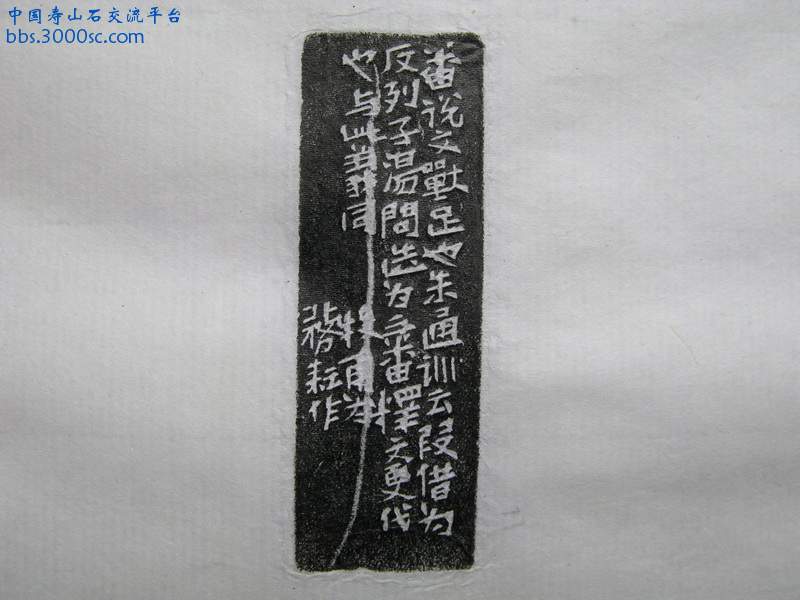 中国寿山石交流平台
bbs.3000sc.com
番說文獸足也朱通訓云段借为
反列子湯問迭为三番釋文更代
也与此義同
牧甫
耘作